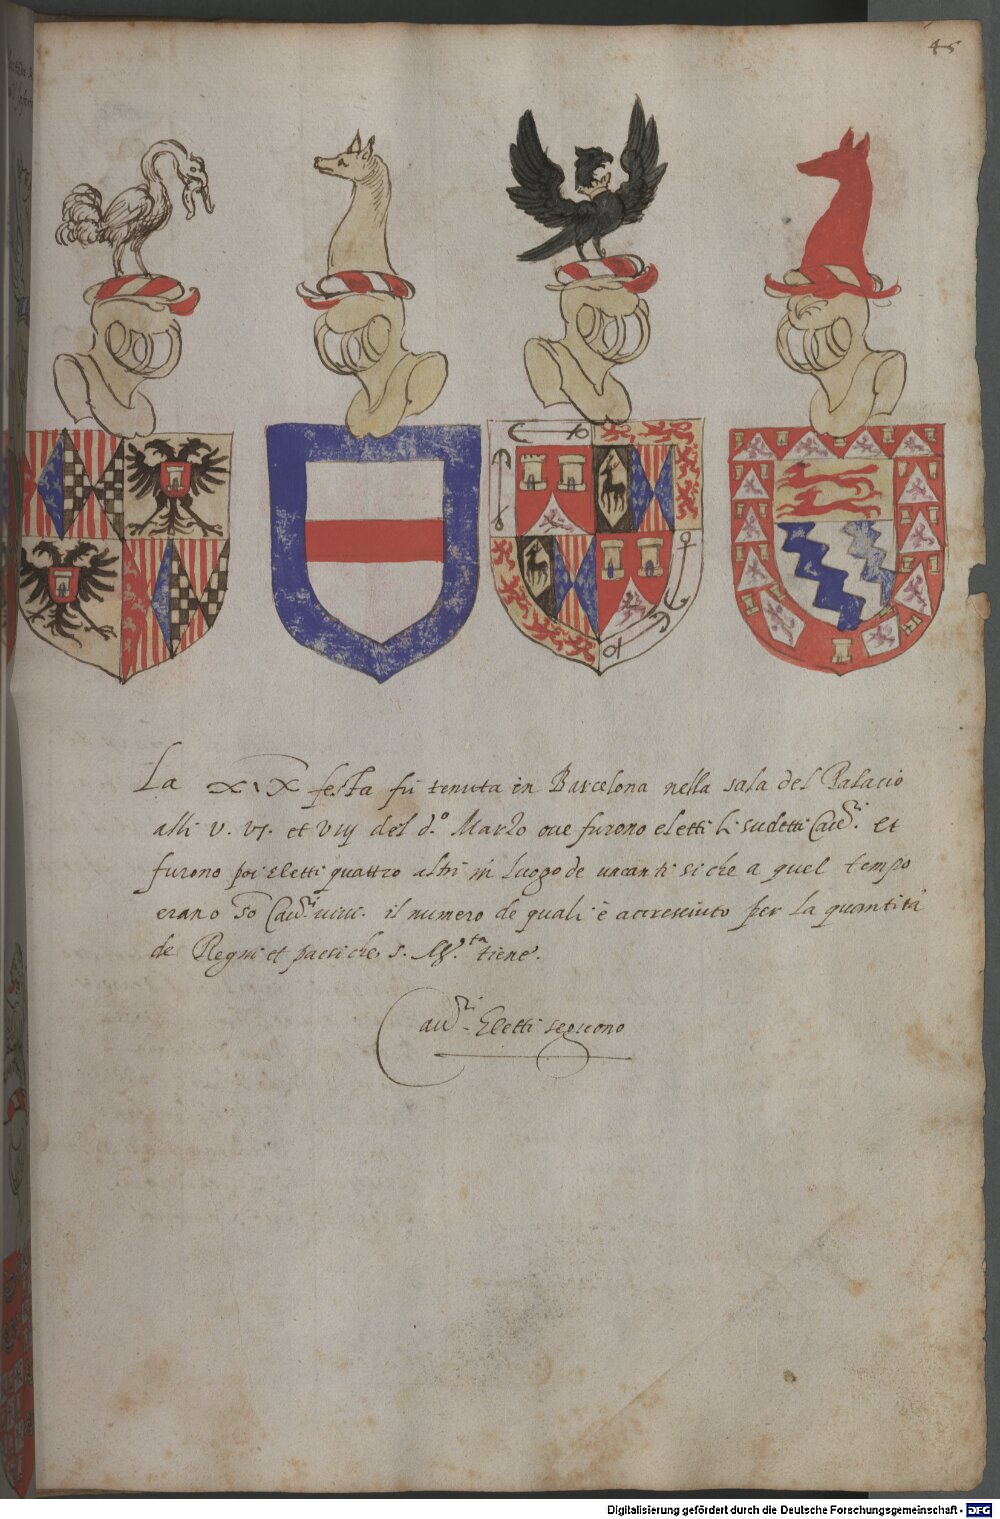 45
La XIX festa fu tenuta in Barcelona nella sala del Palacio
alli V. VI. et VIIJ del d.º Marzo oue furono eletti li sudetti Cau.ri Et
furono poi eletti quattro altri in luogo de uacanti si che a quel tempo
erano 50 Cau.ri uiui. il numero de quali è accresciuto per la quantità
de Regni et paesi che S. M.ta tiene.
Cau.ri Eletti seguono
Digitalisierung gefördert durch die Deutsche Forschungsgemeinschaft - DFG